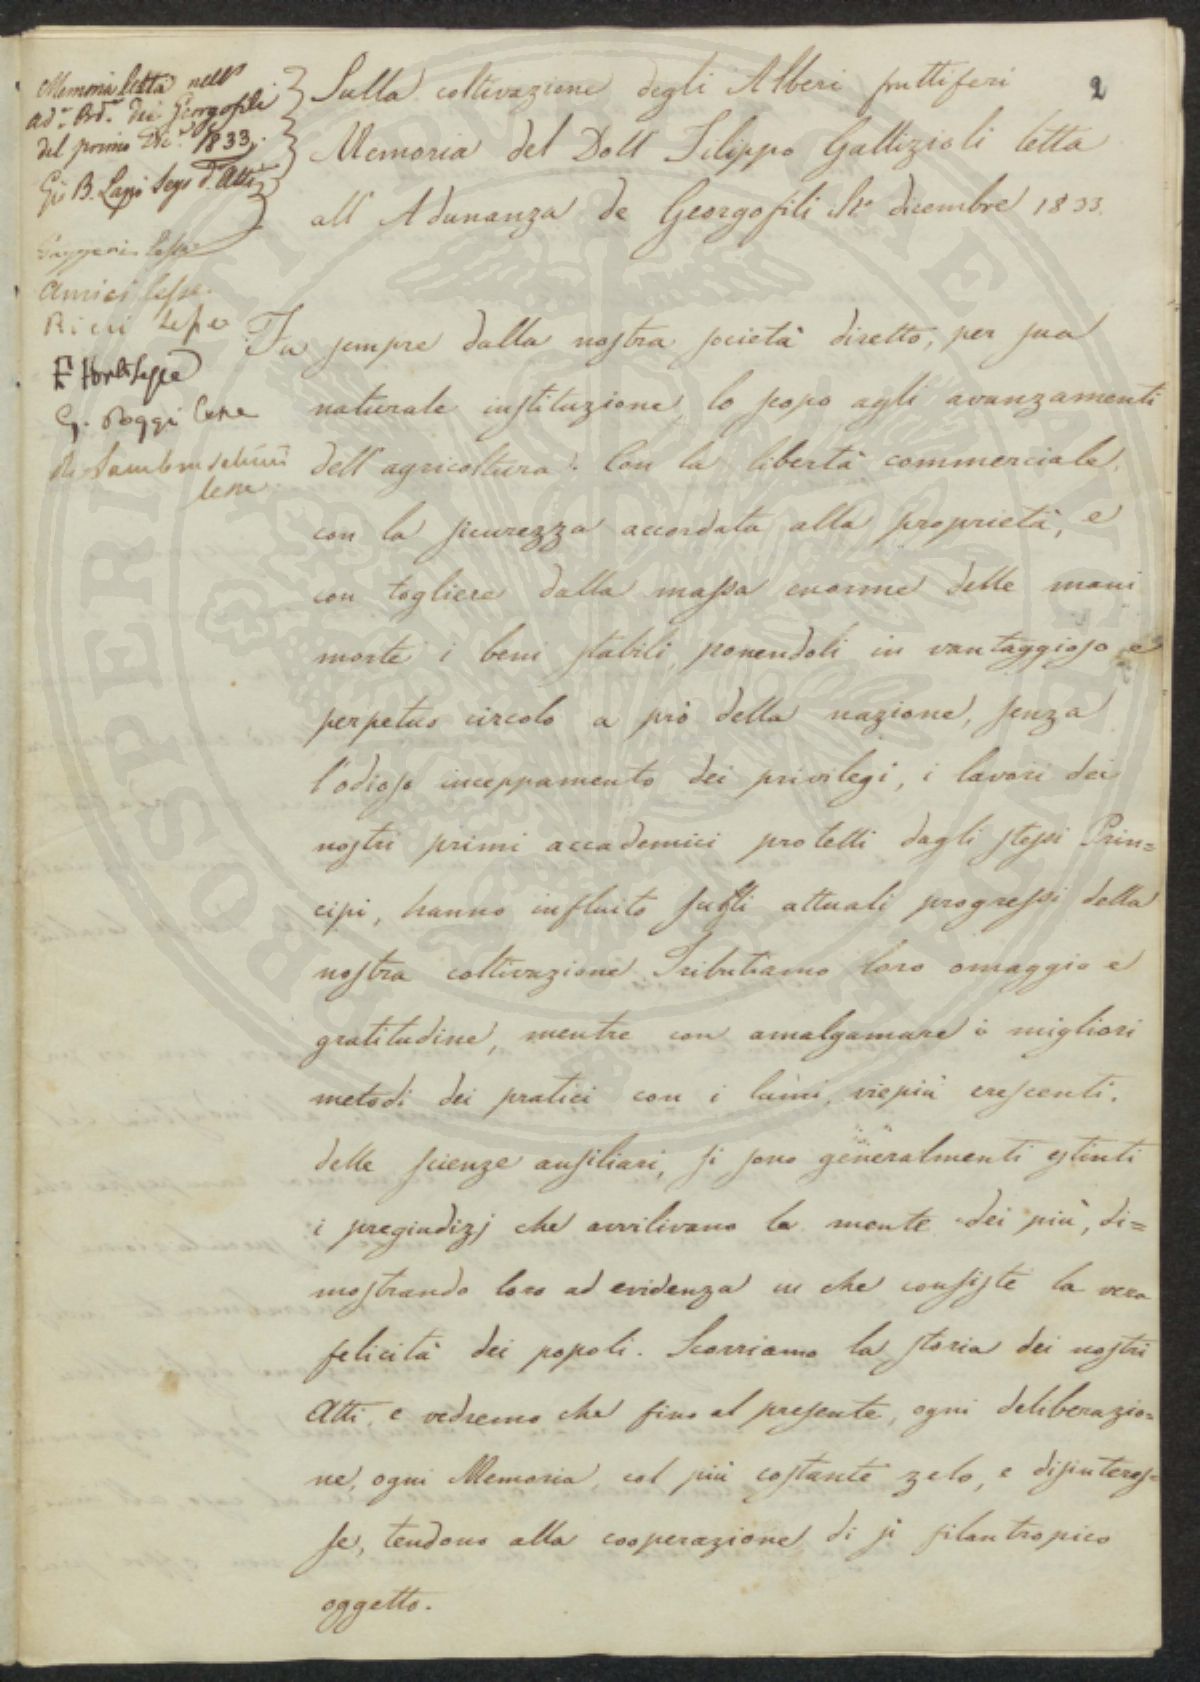 2
Memoria letta nell'
ad.a Ord.a dei Georgofili
del primo Dic.e 1833.
Segr. d. Atti
lesse
Amici lesse
Ricci lesse
lesse
G. Poggi lesse
R. Lambruschini
lesse
Sulla coltivazione degli Alberi fruttiferi
Memoria del Dott Filippo Gallizioli letta
all' Adunanza de Georgofili dicembre 1833.
Fu sempre dalla nostra società diretto, per sua
naturale instituzione, lo scopo agli avanzamenti
dell'agricoltura. Con la libertà commerciale,
con la sicurezza accordata alla proprietà, e
con togliere dalla massa enorme delle mani
morte i beni stabili, ponendoli in vantaggioso e
perpetuo circolo a prò della nazione, senza
l'odioso inceppamento dei privilegi, i lavori dei
nostri primi accademici protetti dagli stessi Prin=
cipi, hanno influito sulli attuali progressi della
nostra coltivazione. Tributiamo loro omaggio e
gratitudine, mentre con amalgamare i migliori
metodi dei pratici con i lumi, viepiù crescenti,
delle scienze ausiliari, si sono generalmenti estinti
i pregiudizj che avvilivano la mente dei più, di=
mostrando loro ad evidenza in che consiste la vera
felicità dei popoli. Scorriamo la storia dei nostri
Atti, e vedremo che fino al presente, ogni deliberazio=
ne, ogni Memoria, col più costante zelo, e disinteres=
se, tendono alla cooperazione di sì filantropico
oggetto.
PROSPERITATI PUBLICAE AUGENDAE